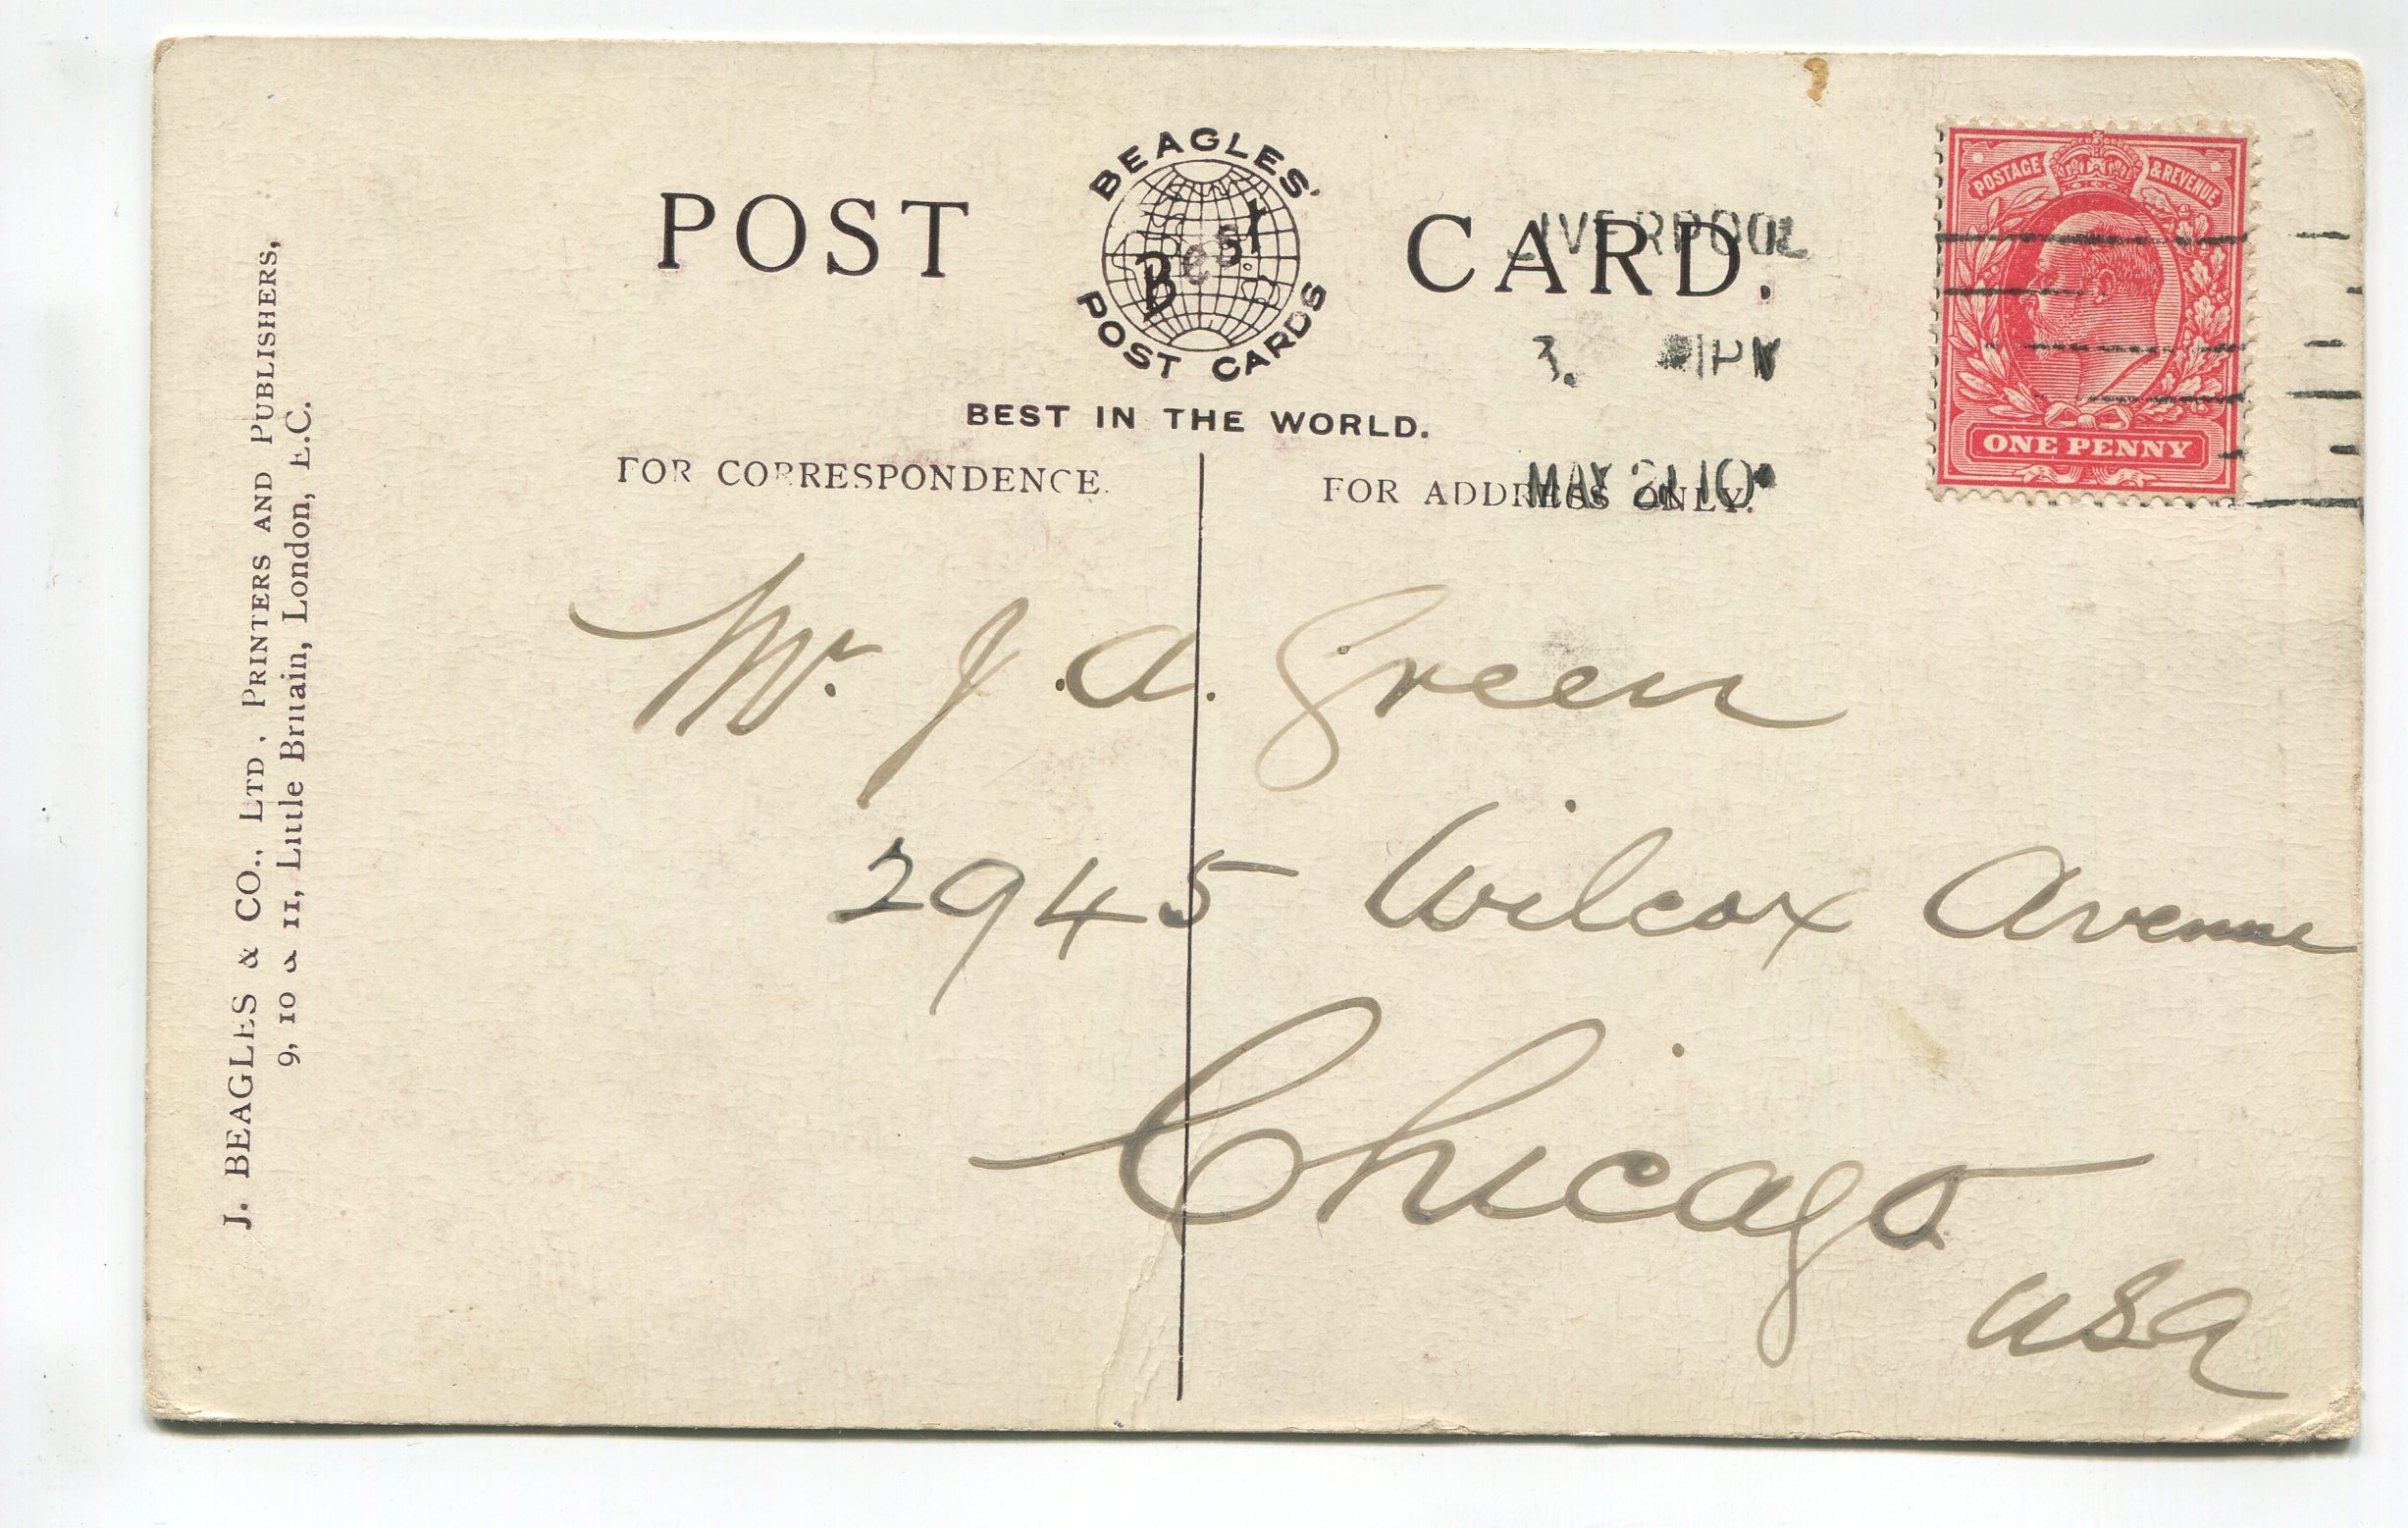 POST CARD.
BEAGLES'
Best
POST CARDS
BEST IN THE WORLD.
FOR CORRESPONDENCE.
FOR ADDRESS ONLY.
LIVERPOOL
MAY 21 10
POSTAGE & REVENUE
ONE PENNY
Mr. J. A. Green
2945 Wilcox Avenue
Chicago
USA
J. BEAGLES & CO., LTD., PRINTERS AND PUBLISHERS,
9, 10 & 11, Little Britain, London, E.C.